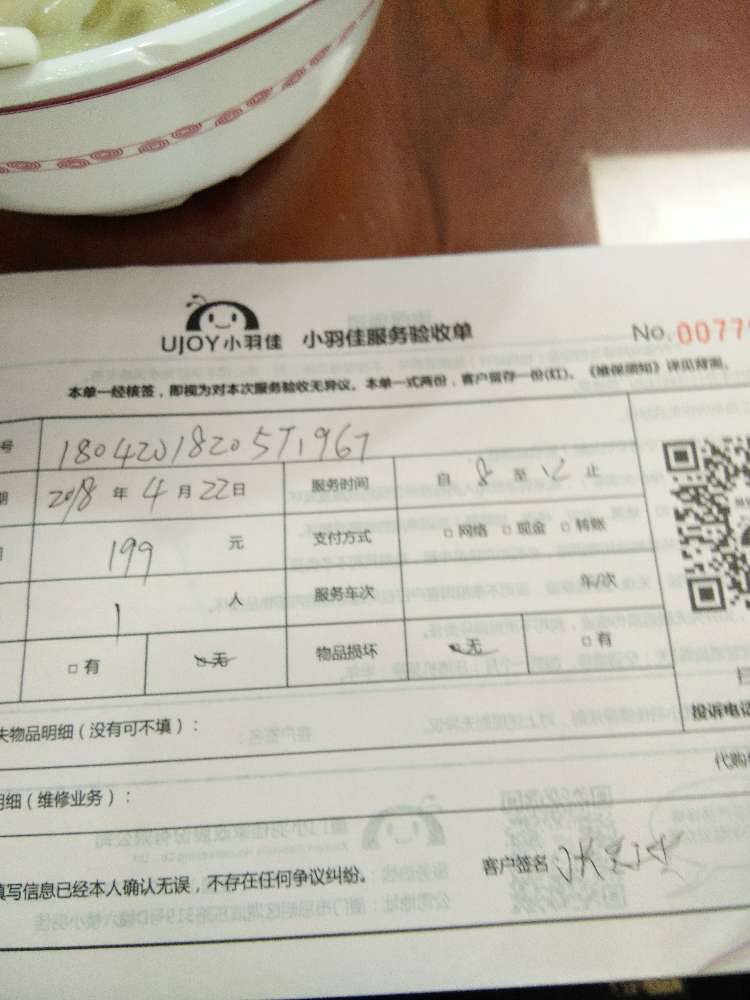 UJOY小羽佳 小羽佳服务验收单 No. 0077
本单一经核签，即视为对本次服务验收无异议。本单一式两份，客户留存一份(红)。《维保须知》详见背面。
号 180420182051967
期 2018 年 4 月 22 日 服务时间 自 8 至 12 止
199 元 支付方式 □网络 □现金 □转账
1 人 服务车次 年/次
□有 □无 物品损坏 □无 □有
失物品明细（没有可不填）： 投诉电话
明细（维修业务）： 代购
填写信息已经本人确认无误，不存在任何争议纠纷。 客户签名